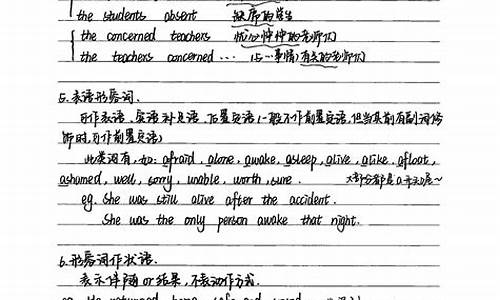 the students absent 缺席的学生
the concerned teachers 忧心忡忡的老师们
the teachers concerned ... (与…事情)有关的老师们
5. 表语形容词.
可作表语、宾语补足语、后置定语(一般不作前置定语,但当其前有副词修
饰时,可作前置定语)
此类词有,如: afraid, alone, awake, asleep, alive, alike, afloat,
ashamed, well, sorry, unable, worth, sure. 大部分都是a开头

eg. She was still alive after the accident.
She was the only person awake that night.
6. 形容词作状语.
表示伴随 or 结果, 不表动作方式.
eg. He returned home safe and